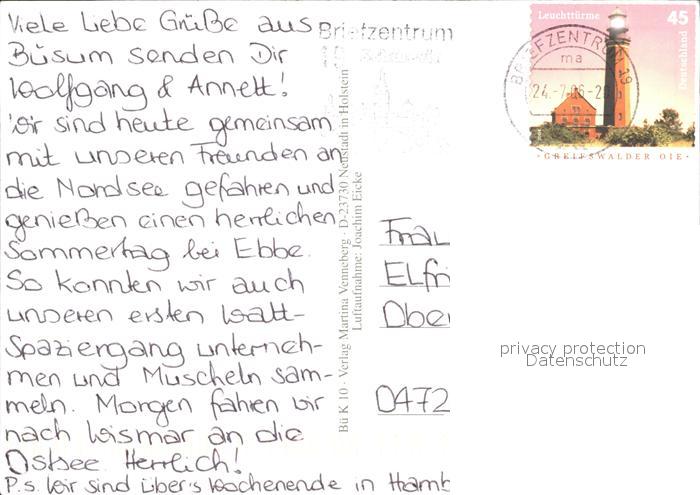 Viele Liebe Grüße aus
Büsum senden Dir
Wolfgang & Annett!
Wir sind heute gemeinsam
mit unseren Freunden an
die Nordsee gefahren und
genießen einen herrlichen
Sommertag bei Ebbe.
So konnten wir auch
unseren ersten Watt-
Spaziergang unterneh-
men und Muscheln sam-
meln. Morgen fahren wir
nach Wismar an die
Ostsee. Herrlich!
P.s. Wir sind über's Wochenende in Hamb
Briefzentrum
Bü K 10 · Verlag Martina Venneberg · D-23730 Neustadt in Holstein
Luftaufnahme: Joachim Eicke
Leuchttürme 45
Deutschland
GREIFSWALDER OIE
BRIEFZENTRUM 19
ma
24.-7.06-20
Frau
Elfri
Ober
0472
privacy protection
Datenschutz